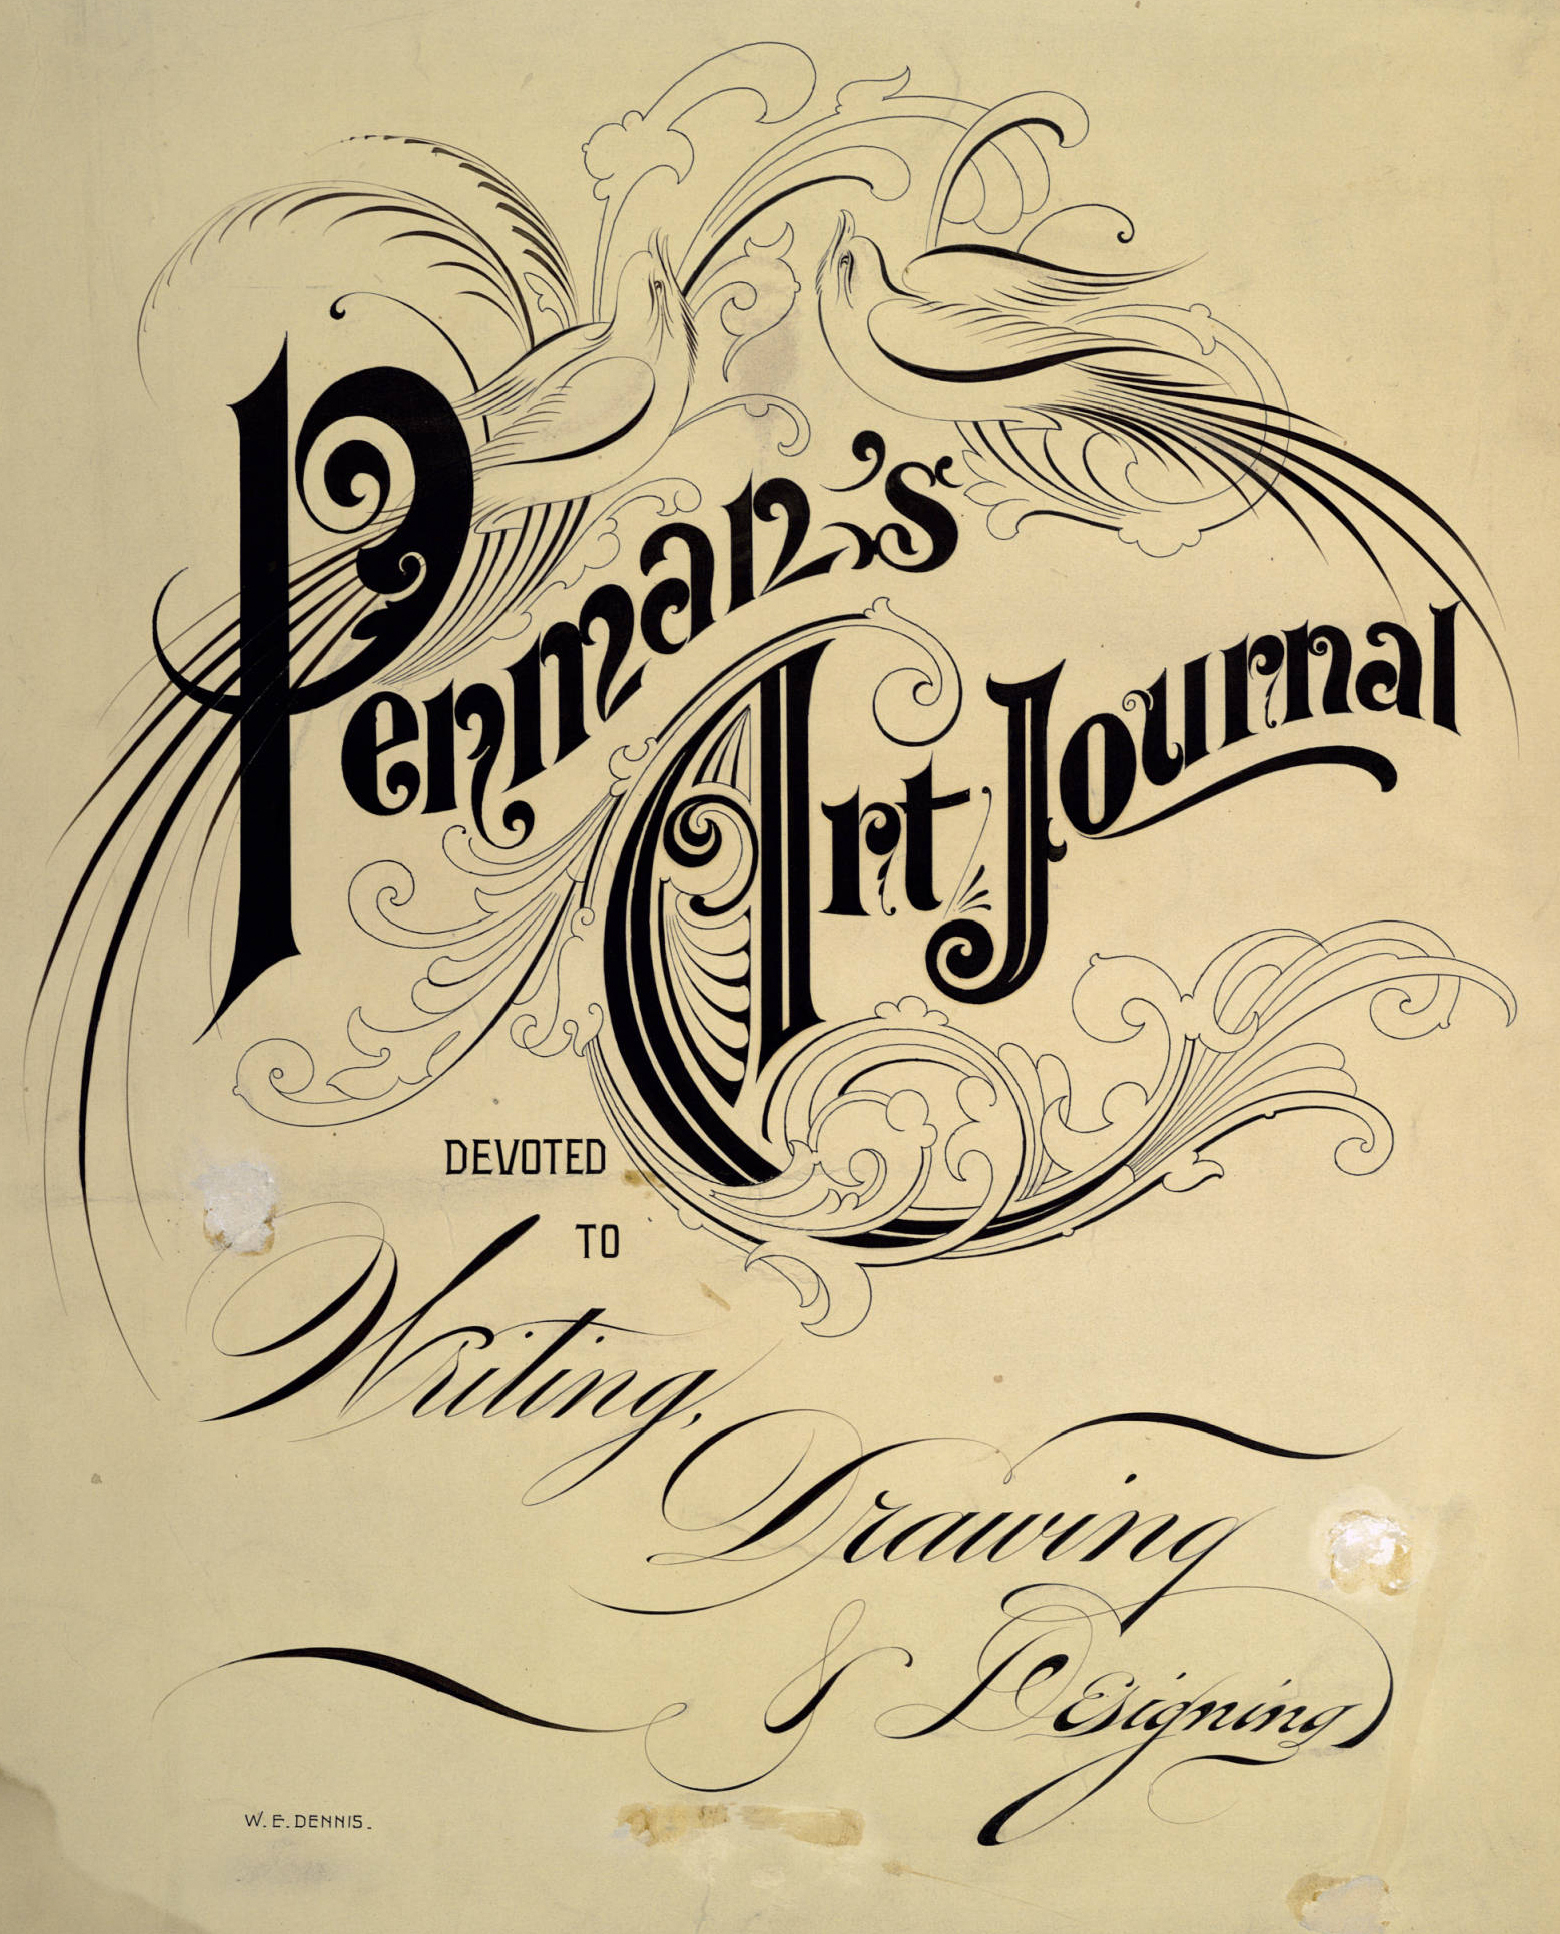 Penman's
Art Journal
DEVOTED
TO
Writing,
Drawing
& Designing
W. E. DENNIS.